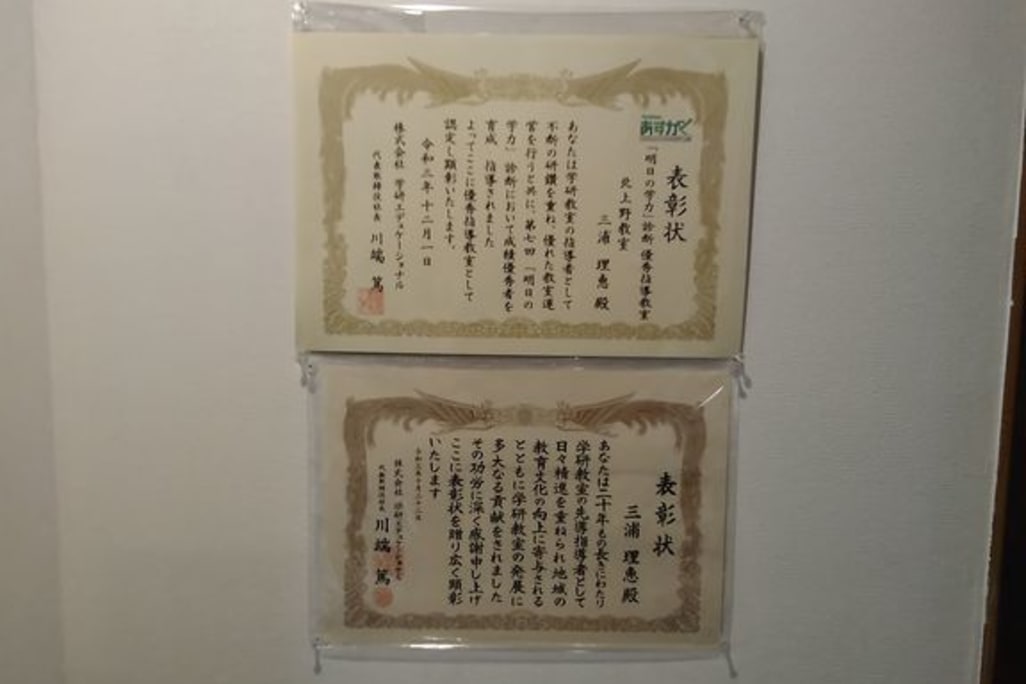 表彰状
あすがく
「明日の学力」診断 優秀指導教室
北上野教室
三浦 理恵 殿
あなたは学研教室の指導者として
不断の研鑽を重ね、優れた教室運
営を行うと共に、第七回「明日の
学力」診断において成績優秀者を
育成 指導されました
よってここに優秀指導教室として
認定し顕彰いたします。
令和三年十二月一日
株式会社 学研エデュケーショナル
代表取締役社長 川端 篤
表彰状
三浦 理恵 殿
あなたは二十年もの長きにわたり
学研教室の先導指導者として
日々精進を重ねられ地域の
教育文化の向上に寄与される
とともに学研教室の発展に
多大なる貢献をされました
その功労に深く感謝申し上げ
ここに表彰状を贈り広く顕彰
いたします
株式会社 学研エデュケーショナル
代表取締役社長 川端 篤